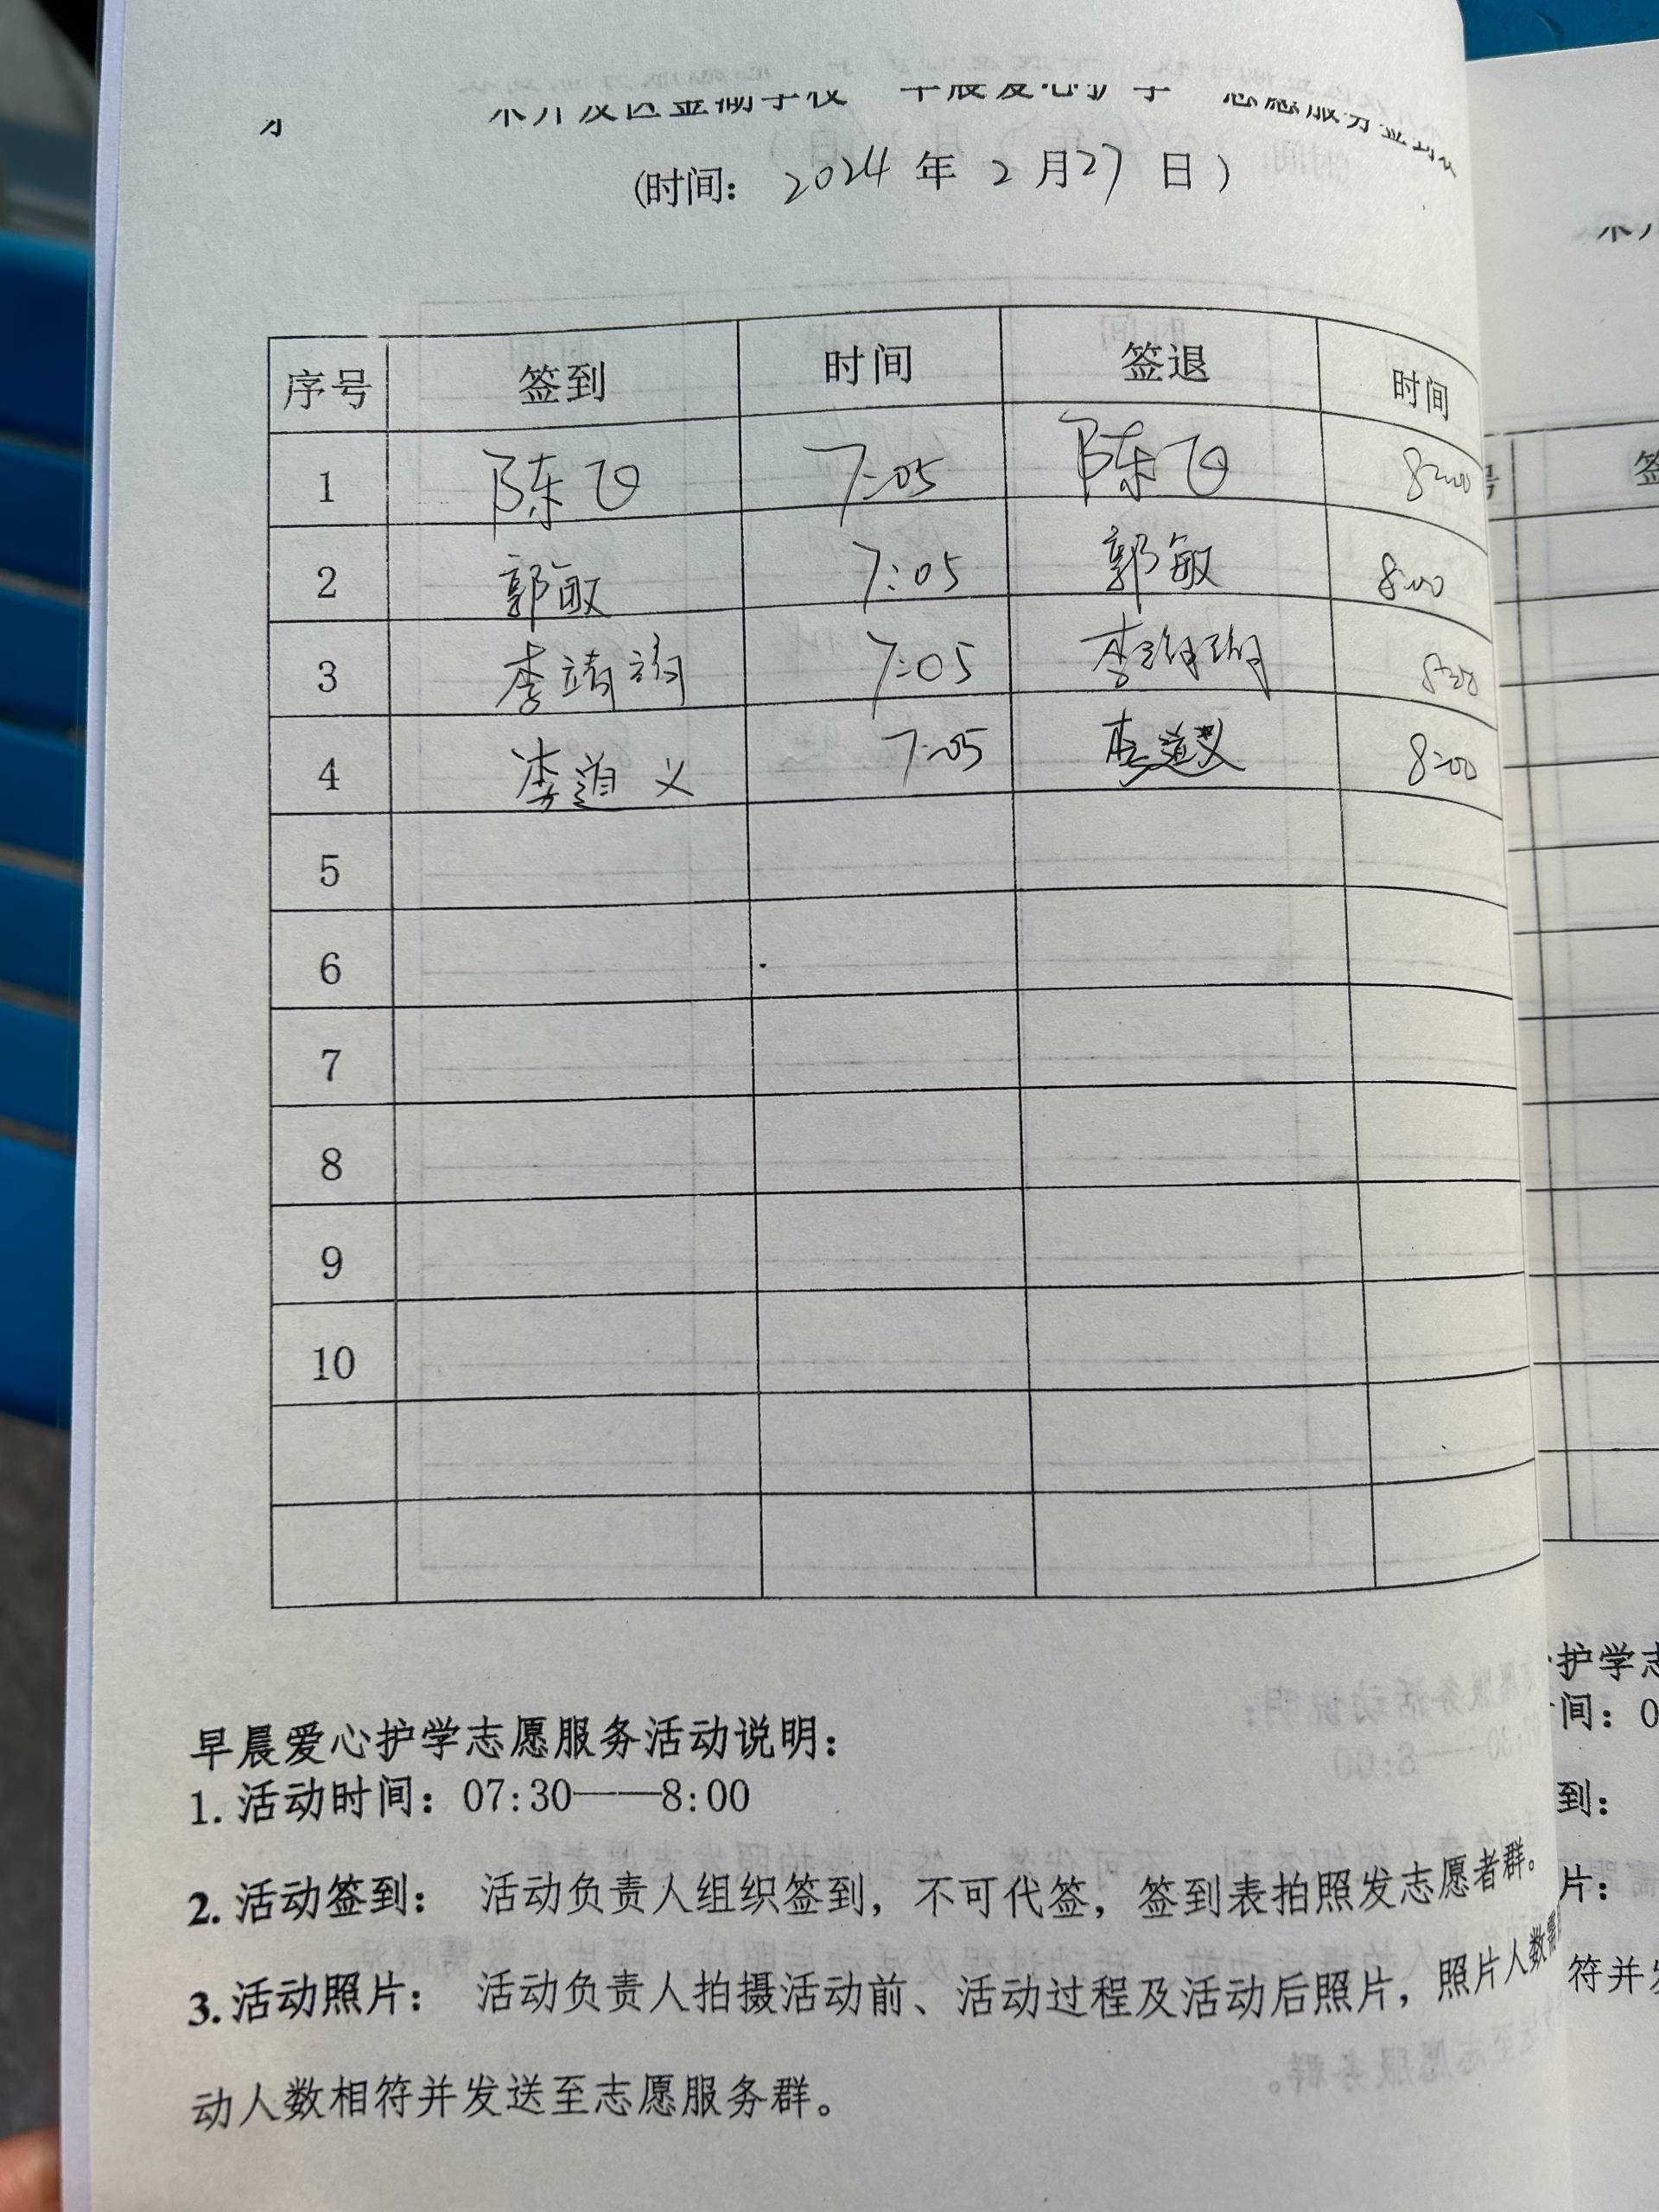 术开发区金湖学校 早晨爱心护学 志愿服务签到表
(时间: 2024 年 2 月 27 日)
序号 签到 时间 签退 时间
1 陈飞 7:05 陈飞 8:00
2 郭敏 7:05 郭敏 8:00
3 李靖 7:05 李 8:00
4 李道义 7:05 李道义 8:00
5
6
7
8
9
10
早晨爱心护学志愿服务活动说明:
1. 活动时间: 07:30——8:00
2. 活动签到: 活动负责人组织签到, 不可代签, 签到表拍照发志愿者群。
3. 活动照片: 活动负责人拍摄活动前、活动过程及活动后照片, 照片人数需
动人数相符并发送至志愿服务群。
号 签
护学志
间: 0
到:
片:
符并发